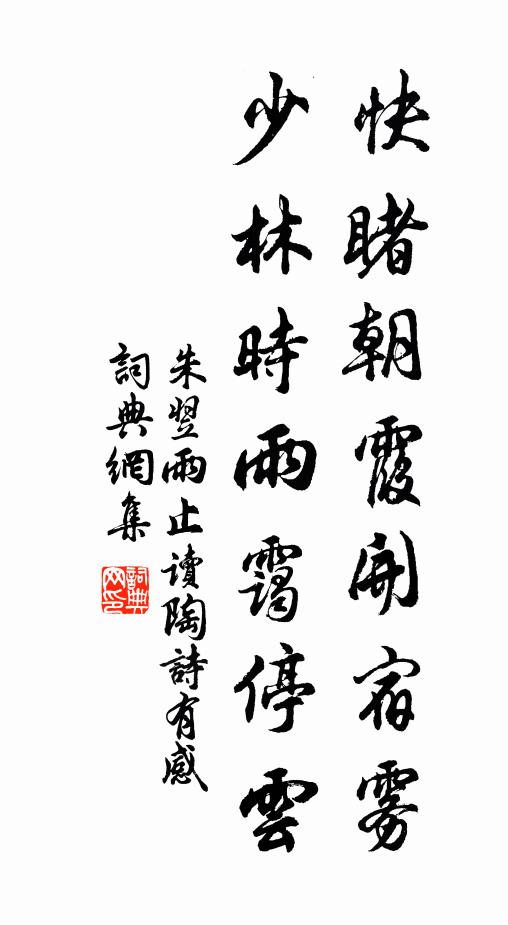 快睹朝霞開宿雾
少林時雨靄停雲
朱翌雨止讀陶詩有感
詞典網集
詞典網印